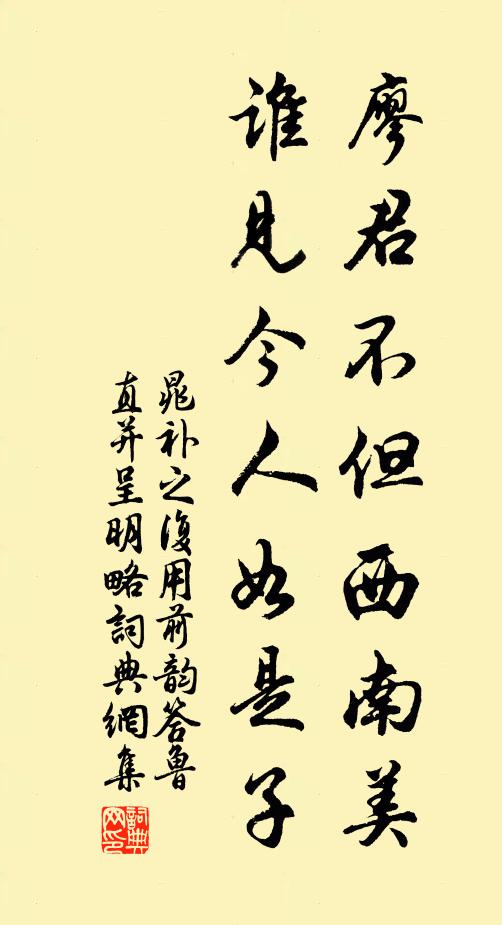 廖君不但西南美
誰見今人如是子
晁补之復用前韵答魯
直并呈明略詞典網集
詞典
网印